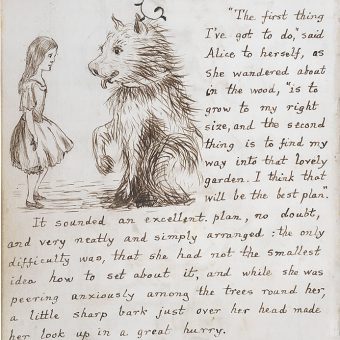 "The first thing
I've got to do," said
Alice to herself, as
she wandered about
in the wood, "is to
grow to my right
size, and the second
thing is to find my
way into that lovely
garden. I think that
will be the best plan".
It sounded an excellent plan, no doubt,
and very neatly and simply arranged: the only
difficulty was, that she had not the smallest
idea how to set about it, and while she was
peering anxiously among the trees round her,
a little sharp bark just over her head made
her look up in a great hurry.